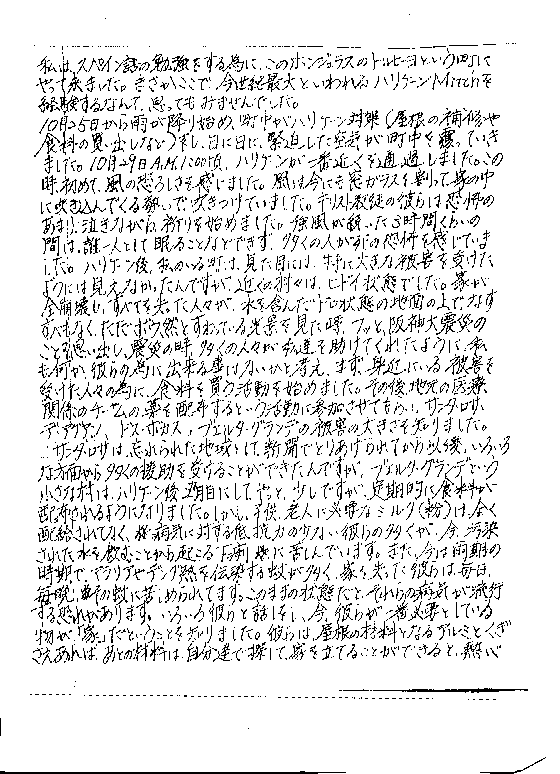 私は、スペイン語の勉強をする為に、このホンジュラスのトルヒーヨという町に
やって来ました。まさかここで、今世紀最大といわれるハリケーンMitchを
経験するなんて、思ってもおませんでした。
10月25日から雨が降り始め、町中がハリケーン対策(屋根の補修や
食料の買い出しなど)をし、日に日に、緊迫した空気が町中を覆っていき
ました。10月29日A.M.1:00頃、ハリケーンが一番近くを通過しました。この
時初めて、風の恐ろしさを感じました。風は今にも窓ガラスを割って家の中
に吹き込んでくる勢いで吹きつけていました。キリスト教徒の彼らは恐怖の
あまり、泣きながら祈りを始めました。強風が続いた3時間くらいの
間は、誰一人として眠ることなどできず、多くの人が死の恐怖を感じていま
した。ハリケーン後、私のいる町は、見た目には、特に大きな被害を受けた
ようには見えなかったんですが、近くの村々は、ヒドイ状態でした。家が
全崩壊し、すべてを失った人々が、水を含んだ状態の地面の上でなす
すべもなく、ただぼう然とすわっている光景を見た時、フッと、阪神大震災の
ことを思い出し、震災の時、多くの人々が私達を助けてくれたように、私
も何か、彼らの為に出来る事はないかと考え、まず、身近にいる被害を
受けた人々の為に、食料を買う活動を始めました。その後、地元の医療
関係のチームの、薬を配布するという活動に参加させてもらい、サンタ・ロサ・
デ・アグアン、ドス・ボカス、プエルタ・グランデの被害の大きさを知りました。
サンタ・ロサは、忘れられた地域として、新聞でとりあげられてから以後、いろいろ
な方面から多くの援助を受けることができたんですが、プエルタ・グランデという
小さな村は、ハリケーン後、2週目にして、やっと、少しですが、定期的に食料が
配布されるようになりました。しかし、子供、老人に必要なミルク(粉)は、全く
配給されてなく、病気に対する抵抗力の少ない彼らの多くが、今、汚染
された水を飲むことから起こる下痢に苦しんでいます。また、今は雨期の
時期で、マラリアやデング熱を伝染する蚊が多く、家を失った彼らは、毎日、
毎晩、その蚊に苦しめられてます。このままの状態だと、それらの病気が流行
する恐れがあります。いろいろ彼らと話をし、今、彼らが一番必要としている
物が、「家」だということを知りました。彼らは、屋根の材料となるアルミとくぎ
さえあれば、あとの材料は自分達で探して、家を立てることができると、熱心